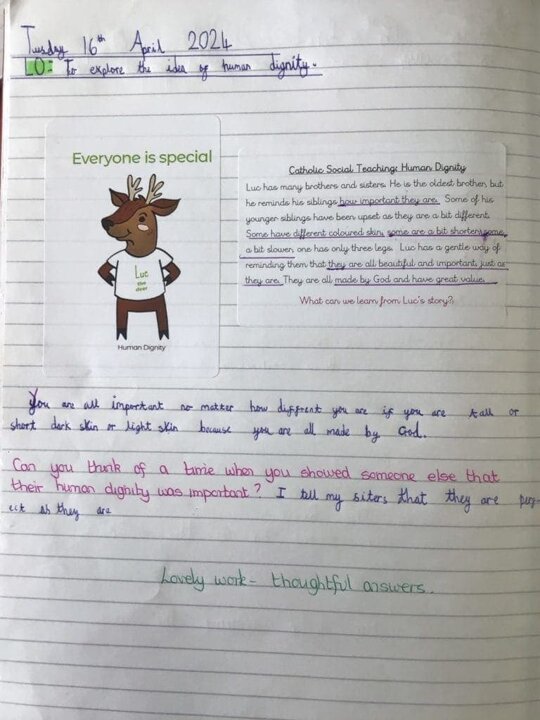 Tuesday 16th April 2024
LO: To explore the idea of human dignity.
Everyone is special
Luc
the
deer
Human Dignity
Catholic Social Teaching: Human Dignity
Luc has many brothers and sisters. He is the oldest brother, but
he reminds his siblings how important they are. Some of his
younger siblings have been upset as they are a bit different.
Some have different coloured skin, some are a bit shorter, some
a bit slower, one has only three legs. Luc has a gentle way of
reminding them that they are all beautiful and important, just as
they are. They are all made by God and have great value.
What can we learn from Luc's story?
You are all important no matter how diffrent you are if you are tall or
short dark skin or light skin because you are all made by God.
Can you think of a time when you showed someone else that
their human dignity was important? I tell my siters that they are perf-
ect as they are
Lovely work - thoughtful answers.